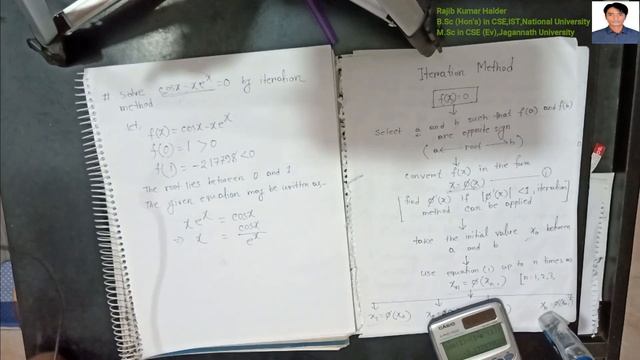 Rajib Kumar Halder
B.Sc (Hon's) in CSE,IST,National University
M.Sc in CSE (Ev),Jagannath University
# Solve cosx - xe^x = 0 by iteration
method
Let,
f(x) = cosx - xe^x
f(0) = 1 > 0
f(1) = -2.17798 < 0
The root lies between 0 and 1.
The given equation may be written as,-
xe^x = cosx
⇒ x = cosx/e^x
Iteration Method
f(x) = 0
Select a and b such that f(a) and f(b)
are opposite sign
(a ← root → b)
convent f(x) in the form
x = φ(x) (1)
[find φ'(x) if |φ'(x)| < 1, iteration
method can be applied]
take the initial value x₀ between
a and b
use equation (1) up to n times as
[n=1,2,3,
x₁ = φ(x₀)
CASIO